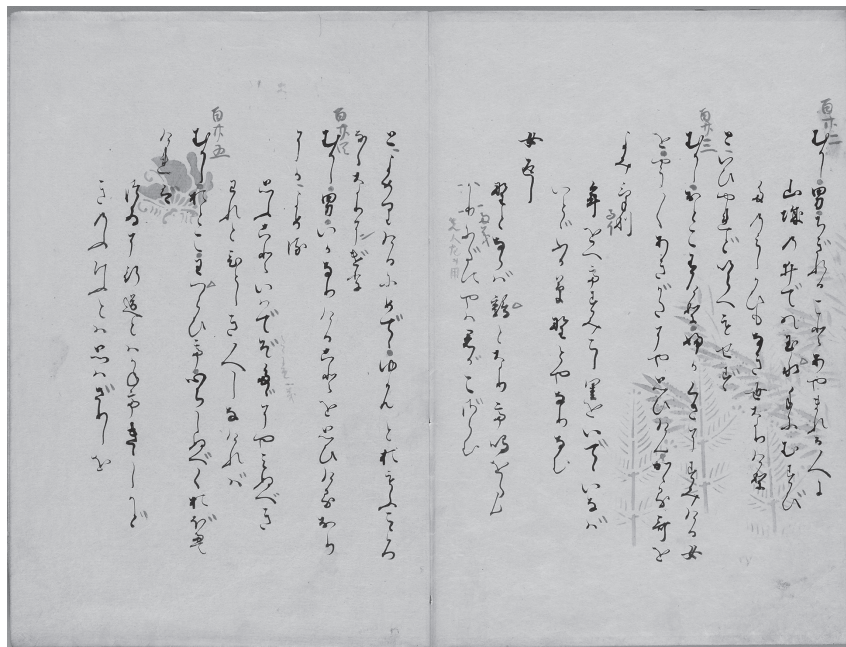 百廿二
むかし男ちぎれることあやまれる人に
山城の井での玉水手にむすび
たのみしかひもなき世なりけり
といひやれどいらへもせず
百廿三
むかしおとこありけりふかくさにすみける女
をやう〱あきがたにや思ひけんかゝる哥を
よみけり
年をへてすみこし里をいでゝいなば
いとゞふか草野とやなりなむ
女返し
野とならば鶉となりて鳴をらん
かりにだにやは君はこざらむ
とよめりけるにめでゝゆかんとおもふこゝろ
なくなりにけり
百廿四
むかし男いかなりけることを思ひけるおり
にかよめる
思ふこといはでぞたゞにやみぬべき
われとひとしき人しなければ
百廿五
むかしおとこわづらひて心ちしぬべくおぼえ
ければ
つゐに行道とはかねてきゝしかど
きのふけふとは思はざりしを